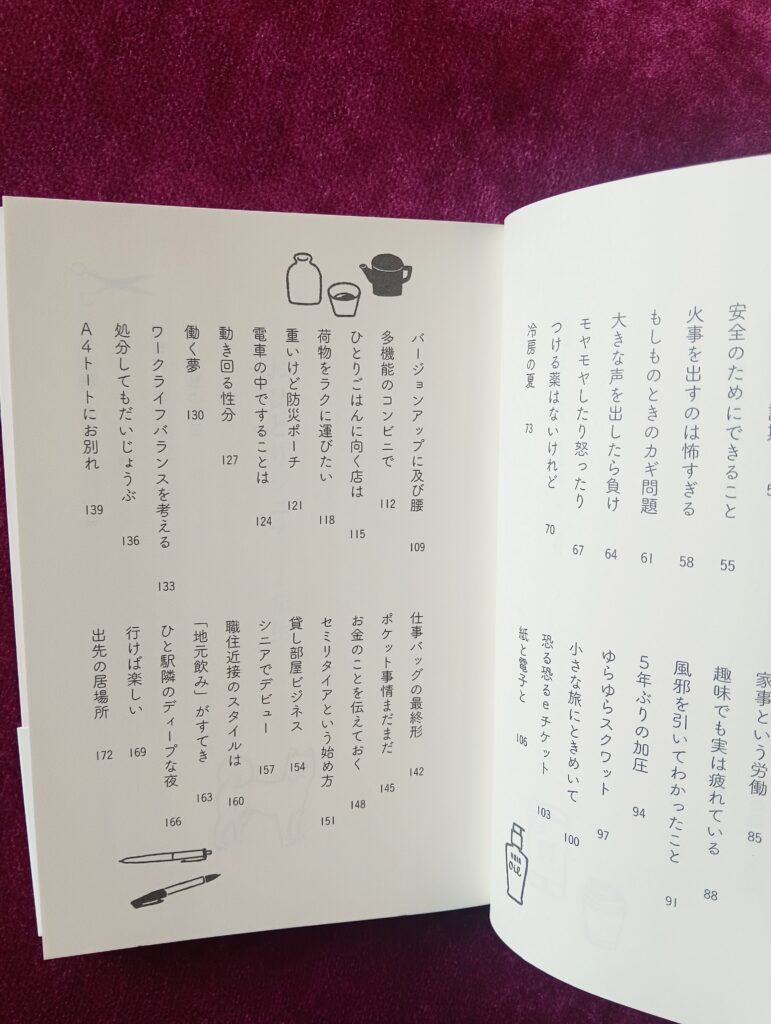 安全のためにできること 55
火事を出すのは怖すぎる 58
もしものときのカギ問題 61
大きな声を出したら負け 64
モヤモヤしたり怒ったり 67
つける薬はないけれど 70
冷房の夏 73
家事という労働 85
趣味でも実は疲れている 88
風邪を引いてわかったこと 91
5年ぶりの加圧 94
ゆらゆらスクワット 97
小さな旅にときめいて 100
恐る恐るeチケット 103
紙と電子と 106
HAIR
Oil
バージョンアップに及び腰 109
多機能のコンビニで 112
ひとりごはんに向く店は 115
荷物をラクに運びたい 118
重いけど防災ポーチ 121
電車の中ですることは 124
動き回る性分 127
働く夢 130
ワークライフバランスを考える 133
処分してもだいじょうぶ 136
A4トートにお別れ 139
仕事バッグの最終形 142
ポケット事情まだまだ 145
お金のことを伝えておく 148
セミリタイアという始め方 151
貸し部屋ビジネス 154
シニアでデビュー 157
職住近接のスタイルは 160
「地元飲み」がすてき 163
ひと駅隣のディープな夜 166
行けば楽しい 169
出先の居場所 172